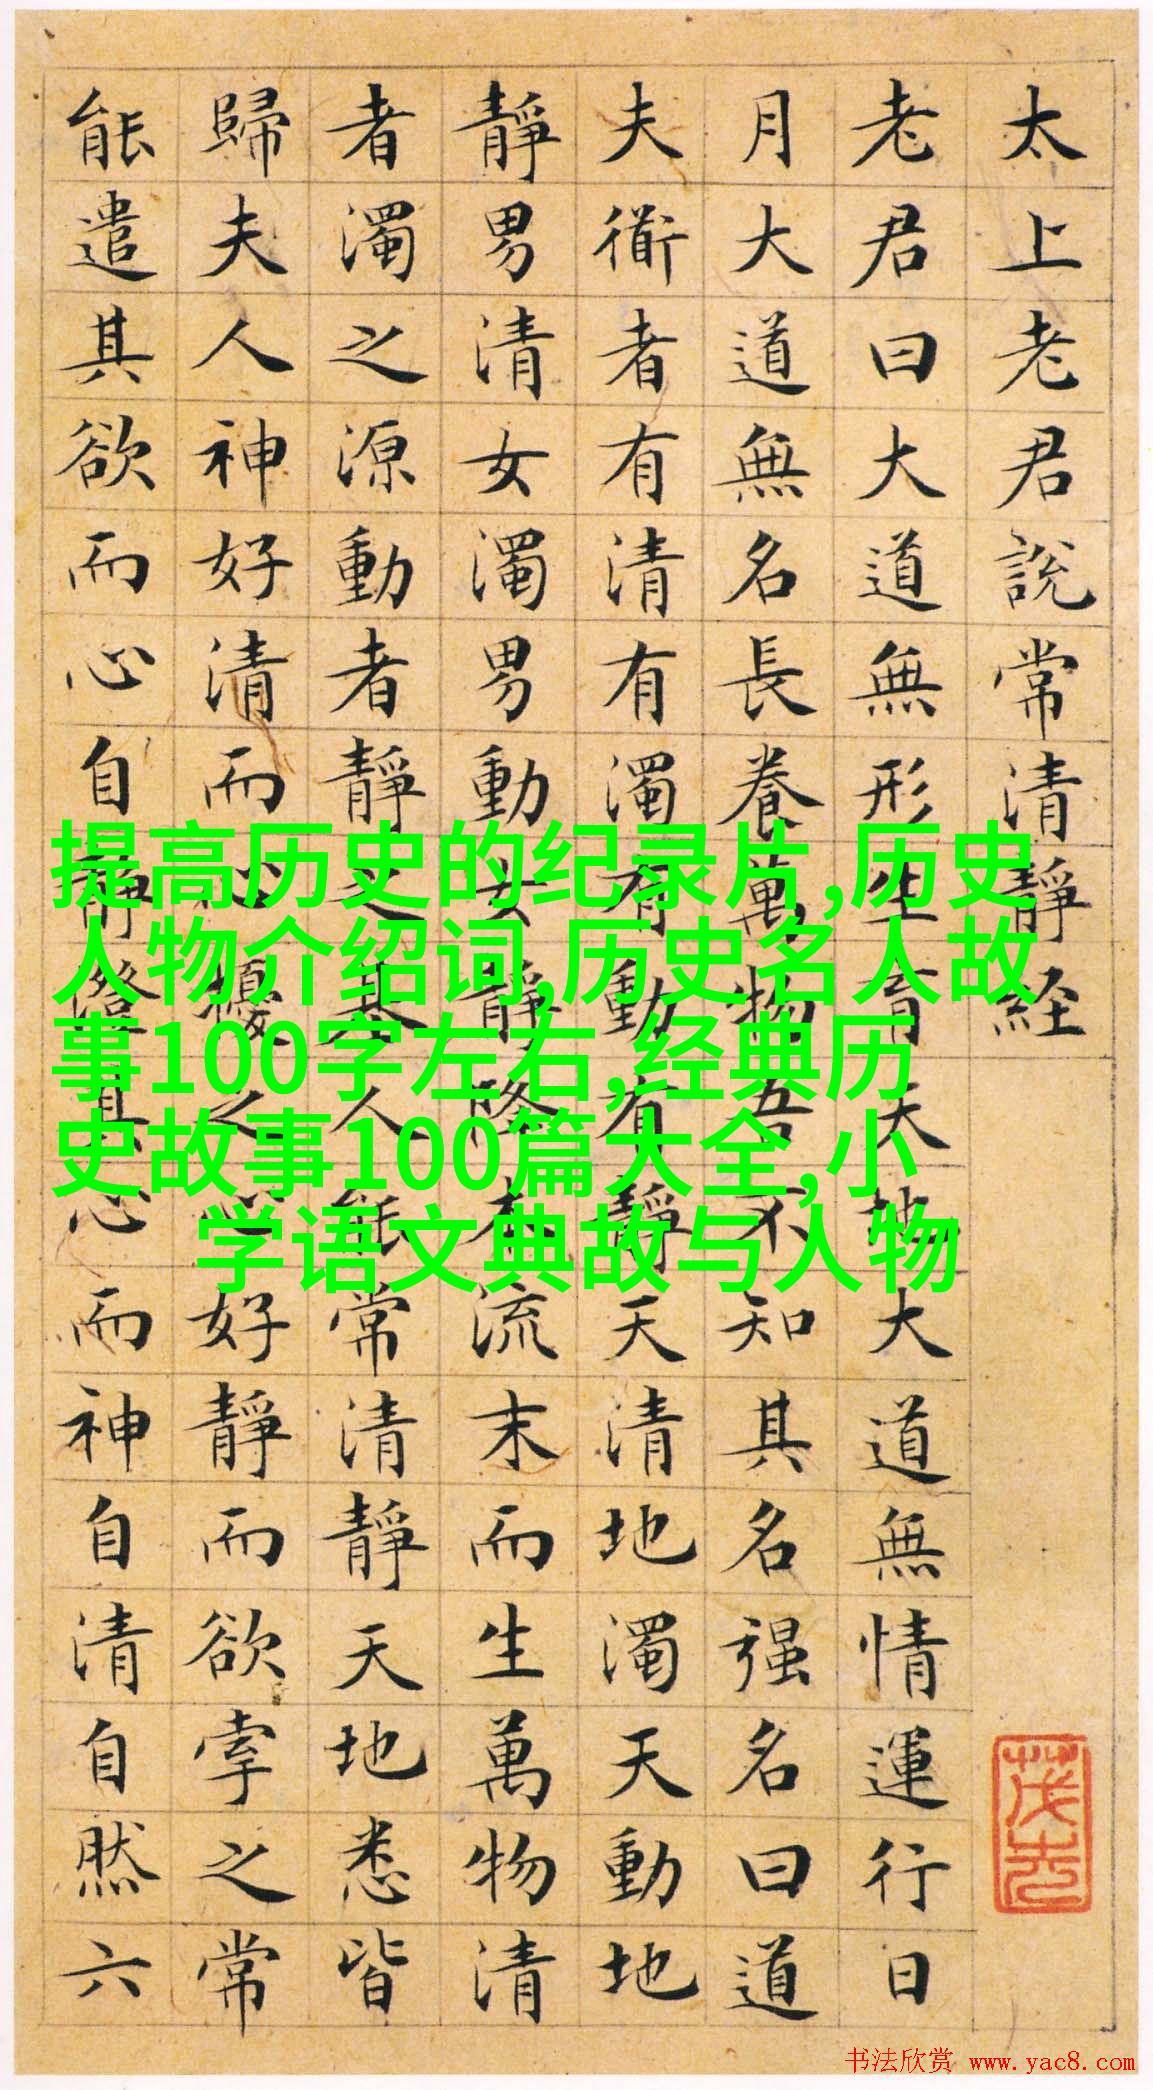 太上老君說常清靜経
老君曰大道無形生育天地大道無情運行日
月大道無名長養萬物吾不知其名强名曰道
夫衜者有清有濁有動有靜天清地濁天動地
靜男清女濁男動女靜降本流末而生萬物清
者濁之源動者靜之基人能常清靜天地悉皆
歸夫人神好清而心擾之心好靜而欲牽之常
能遣其欲而心自靜澄其心而神自清自然六
提高历史的纪录片,历史
人物介绍词,历史名人故
事100字左右,经典历
史故事100篇大全,小
学语文典故与人物
书法欣赏 www.yac8.com